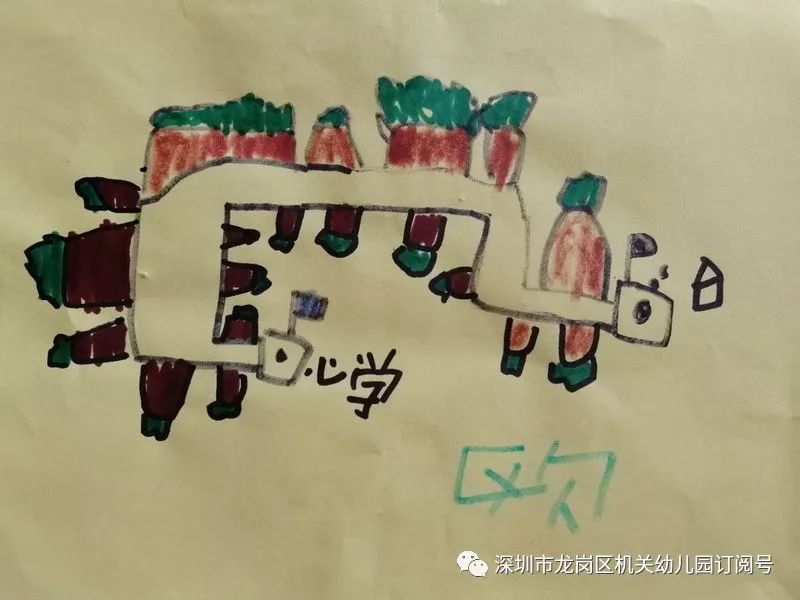 小学
欧
深圳市龙岗区机关幼儿园订阅号